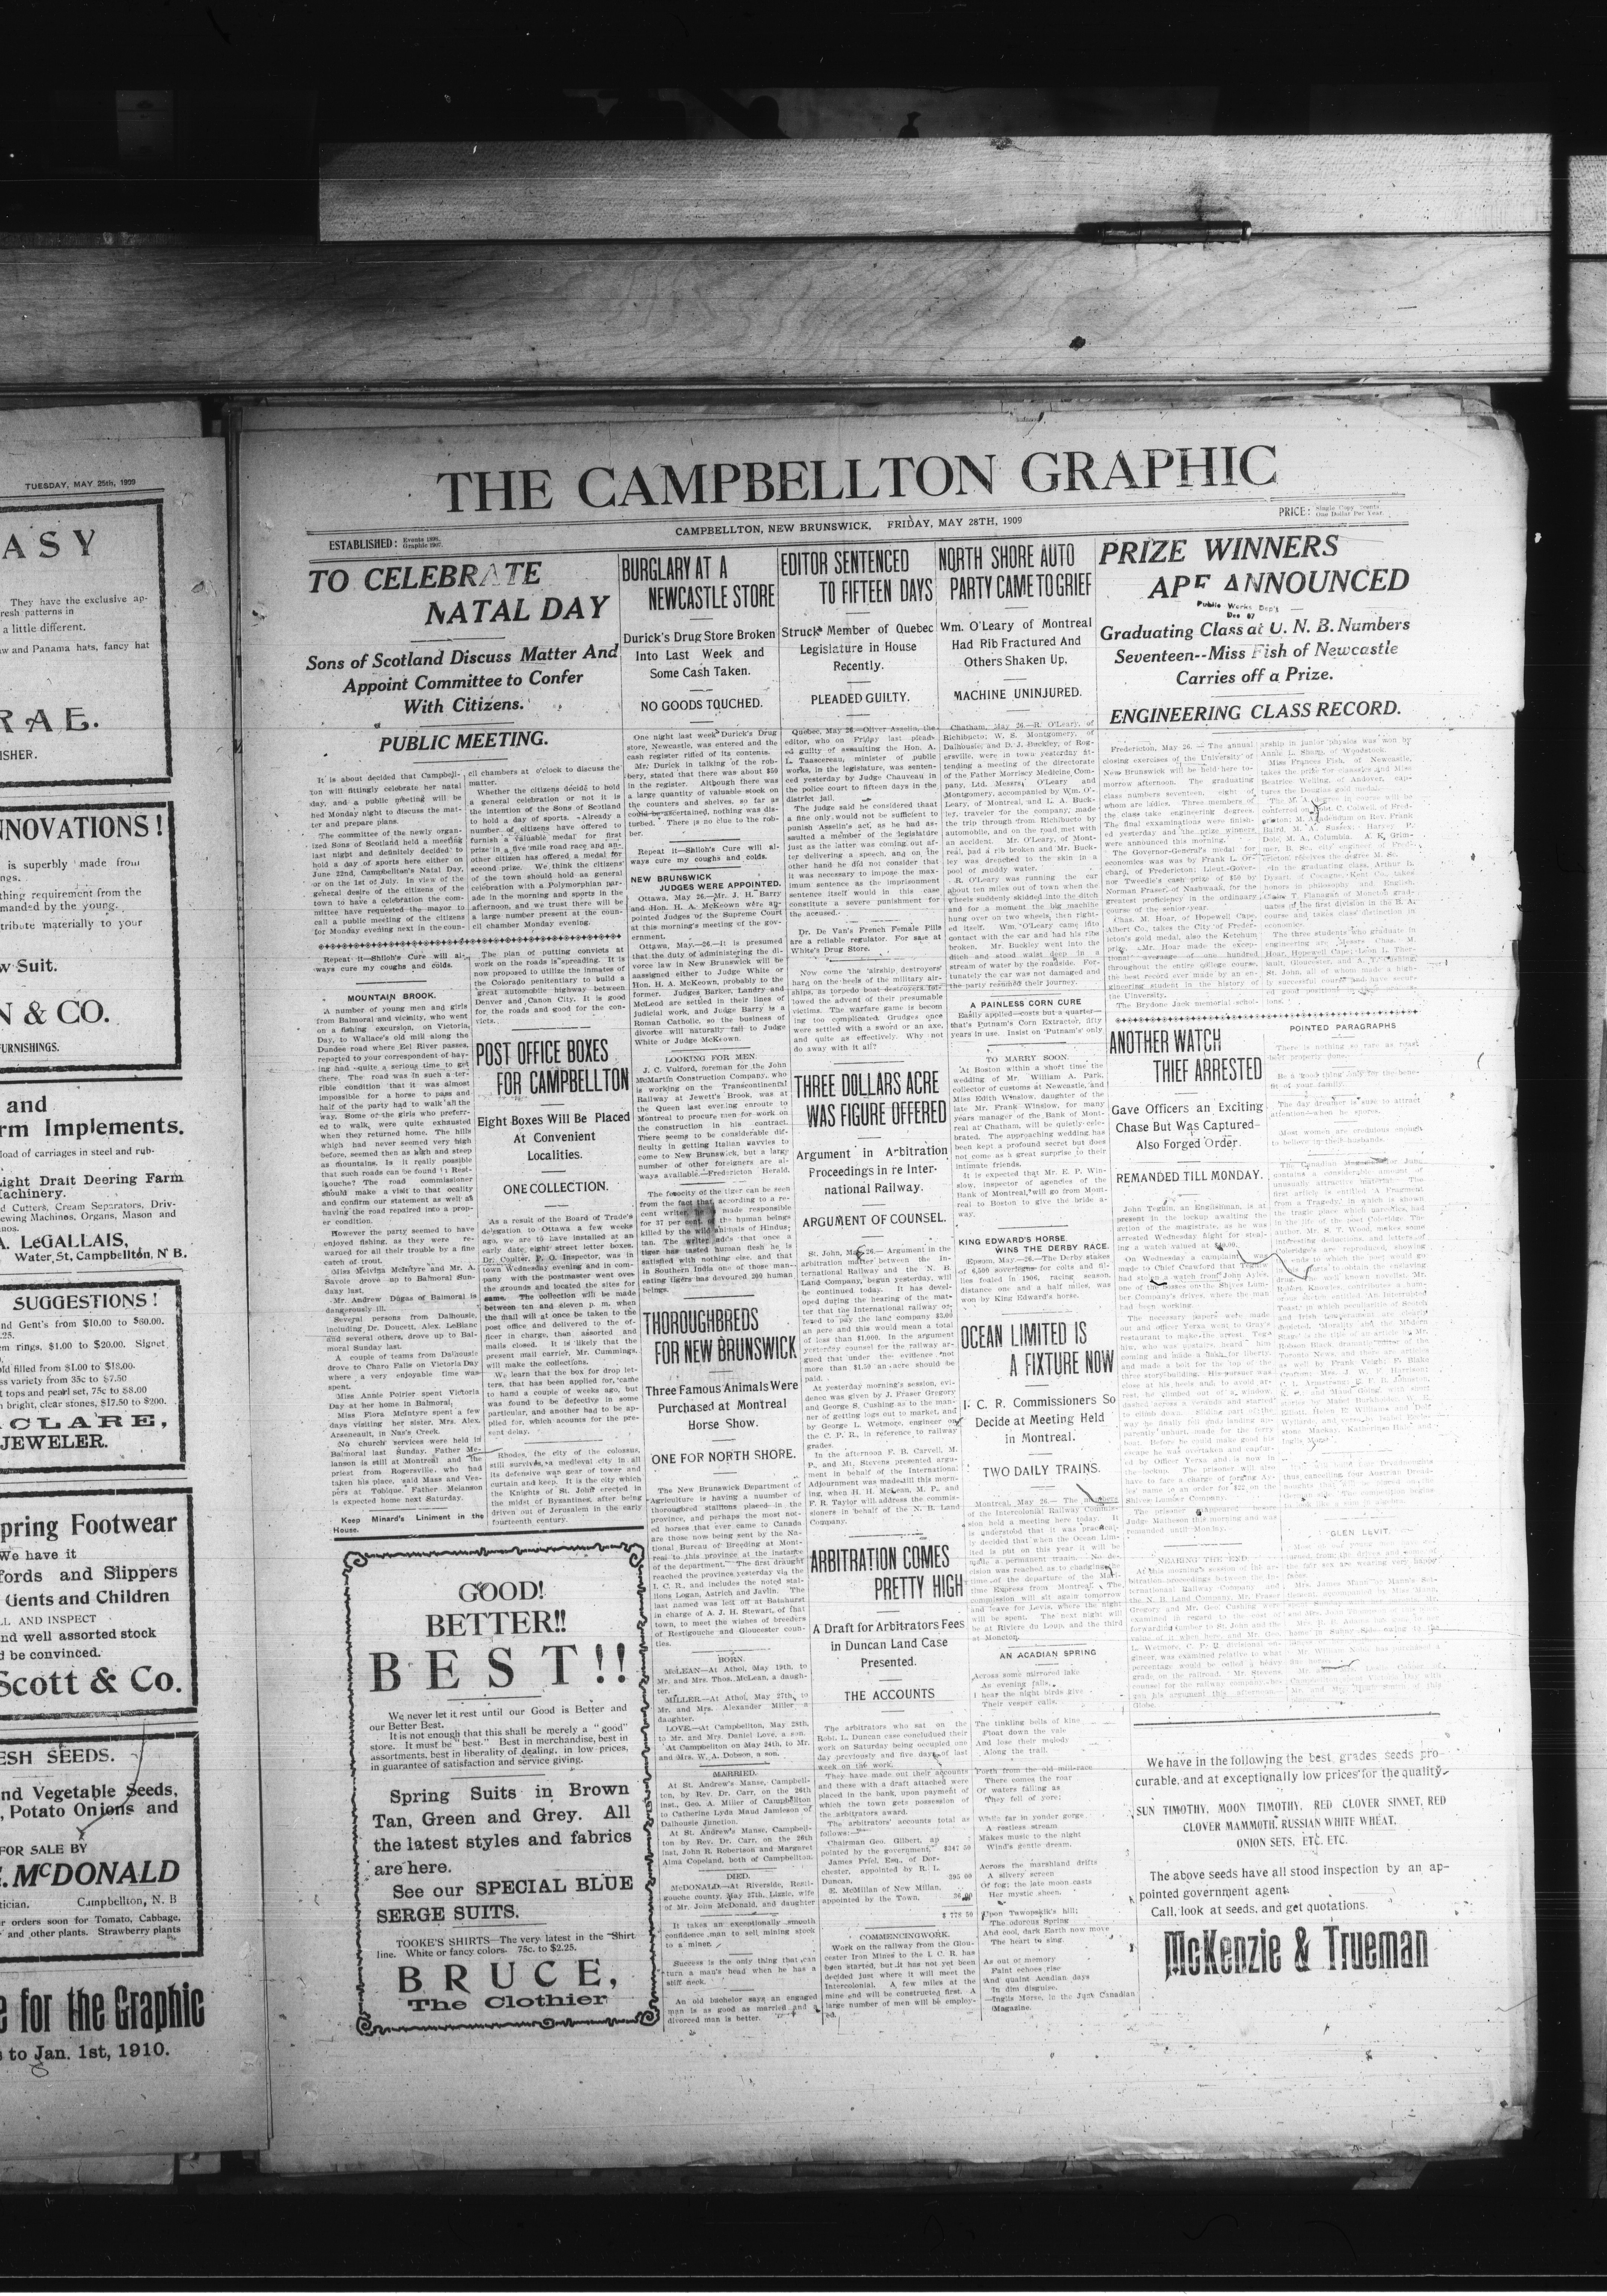 TUESDAY, MAY 25th, 1909
ASY
They have the exclusive ap-
resh patterns in
a little different.
aw and Panama hats, fancy hat
RAE.
ISHER.
NNOVATIONS!
is superbly made from
ngs.
thing requirement from the
manded by the young.
tribute materially to your
w Suit.
N & CO.
FURNISHINGS.
and
rm Implements.
load of carriages in steel and rub-
Light Drait Deering Farm
Machinery.
d Cutters, Cream Separators, Driv-
ewing Machines, Organs, Mason and
nos.
A. LeGALLAIS,
Water St, Campbellton, N B.
SUGGESTIONS!
nd Gent's from $10.00 to $60.00.
.25.
m rings, $1.00 to $20.00. Signet
ld filled from $1.00 to $18.00.
ss variety from 35c to $7.50
t tops and pearl set, 75c to $8.00
n bright, clear stones, $17.50 to $200.
CLARE,
JEWELER.
pring Footwear
We have it
fords and Slippers
Gents and Children
LL AND INSPECT
nd well assorted stock
d be convinced.
Scott & Co.
ESH SEEDS.
nd Vegetable Seeds,
, Potato Onions and
FOR SALE BY
. McDONALD
tician. Campbellton, N. B
r orders soon for Tomato, Cabbage,
and other plants. Strawberry plants
e for the Graphic
s to Jan. 1st, 1910.
THE CAMPBELLTON GRAPHIC
ESTABLISHED: Events 1898. Graphic 1907.
CAMPBELLTON, NEW BRUNSWICK, FRIDAY, MAY 28TH, 1909
PRICE: Single Copy
One Dollar Per Year.
TO CELEBRATE
NATAL DAY
Sons of Scotland Discuss Matter And
Appoint Committee to Confer
With Citizens.
PUBLIC MEETING.
It is about decided that Campbell-
ton will fittingly celebrate her natal
day, and a public meeting will be
hed Monday night to discuss the mat-
ter and prepare plans.
The committee of the newly organ-
ized Sons of Scotland held a meeting
last night and definitely decided to
hold a day of sports here either on
June 22nd, Campbellton's Natal Day,
or on the 1st of July. In view of the
general desire of the citizens of the
town to have a celebration the com-
mittee have requested the mayor to
call a public meeting of the citizens
for Monday evening next in the coun-
cil chambers at o'clock to discuss the
matter.
Whether the citizens decide to hold
a general celebration or not it is
the intention of the Sons of Scotland
to hold a day of sports. Already a
number of citizens have offered to
furnish a valuable medal for first
prize in a five mile road race and an-
other citizen has offered a medal for
second prize. We think the citizens
of the town should hold as general
celebration with a Polymorphian par-
ade in the morning and sports in the
afternoon, and we trust there will be
a large number present at the coun-
cil chamber Monday evening.
Repeat it—Shiloh's Cure will al-
ways cure my coughs and colds.
MOUNTAIN BROOK.
A number of young men and girls
from Balmoral and vicinity, who went
on a fishing excursion, on Victoria
Day, to Wallace's old mill along the
Dundee road where Eel River passes,
reported to your correspondent of hav-
ing had quite a serious time to get
there. The road was in such a ter-
rible condition that it was almost
impossible for a horse to pass and
half of the party had to walk all the
way. Some of the girls who preferr-
ed to walk, were quite exhausted
when they returned home. The hills
which had never seemed very high
before, seemed then as high and steep
as mountains. Is it really possible
that such roads can be found in Rest-
igouche? The road commissioner
should make a visit to that ocality
and confirm our statement as well as
having the road repaired into a prop-
er condition.
However the party seemed to have
enjoyed fishing, as they were re-
warded for all their trouble by a fine
catch of trout.
Miss Melvina McIntyre and Mr. A.
Savoie drove up to Balmoral Sun-
daay last.
Mr. Andrew Dugas of Balmoral is
dangerously ill.
Several persons from Dalhousie,
including Dr. Doucett, Alex. LeBlanc
and several others, drove up to Bal-
moral Sunday last.
A couple of teams from Dalhousie
drove to Charo Falls on Victoria Day
where a very enjoyable time was
spent.
Miss Annie Poirier spent Victoria
Day at her home in Balmoral.
Miss Flora McIntyre spent a few
days visiting her sister, Mrs. Alex.
Arseneault, in Nas's Creek.
No church services were held in
Balmoral last Sunday. Father Me-
lanson is still at Montreal and the
priest from Rogersville, who had
taken his place, said Mass and Ves-
pers at Tobique. Father Melanson
is expected home next Saturday.
Keep Minard's Liniment in the
House.
The plan of putting convicts at
work on the roads is spreading. It is
now proposed to utilize the inmates of
the Colorado penitentiary to build a
great automobile highway between
Denver and Canon City. It is good
for the roads and good for the con-
victs.
POST OFFICE BOXES
FOR CAMPBELLTON
Eight Boxes Will Be Placed
At Convenient
Localities.
ONE COLLECTION.
As a result of the Board of Trade's
delegation to Ottawa a few weeks
ago, we are to have installed at an
early date, eight street letter boxes.
Dr. Coulter, P. O. Inspector, was in
town Wednesday evening and in com-
pany with the postmaster went over
the grounds and located the sites for
same. The collection will be made
between ten and eleven p. m. when
the mail will at once be taken to the
post office and delivered to the of-
ficer in charge, then assorted and
mails closed. It is likely that the
present mail carrier, Mr. Cummings,
will make the collections.
We learn that the box for drop let-
ters, that has been applied for, came
to hand a couple of weeks ago, but
was found to be defective in some
particular, and another had to be ap-
plied for, which acounts for the pre-
sent delay.
Rhodes, the city of the colossus,
still survives, a medieval city in all
its defensive war gear of tower and
curtain and keep. It is the city which
the Knights of St. John erected in
the midst of Byzantines, after being
driven out of Jerusalem in the early
fourteenth century.
GOOD!
BETTER!!
BEST!!
We never let it rest until our Good is Better and
our Better Best.
It is not enough that this shall be merely a "good"
store. It must be "best." Best in merchandise, best in
assortments, best in liberality of dealing, in low prices,
in guarantee of satisfaction and service giving.
Spring Suits in Brown
Tan, Green and Grey. All
the latest styles and fabrics
are here.
See our SPECIAL BLUE
SERGE SUITS.
TOOKE'S SHIRTS—The very latest in the Shirt
line. White or fancy colors. 75c. to $2.25.
BRUCE,
The Clothier
BURGLARY AT A
NEWCASTLE STORE
Durick's Drug Store Broken
Into Last Week and
Some Cash Taken.
NO GOODS TOUCHED.
One night last week Durick's Drug
store, Newcastle, was entered and the
cash register rifled of its contents.
Mr. Durick in talking of the rob-
bery, stated that there was about $50
in the register. Although there was
a large quantity of valuable stock on
the counters and shelves, so far as
could be ascertained, nothing was dis-
turbed. There is no clue to the rob-
ber.
Repeat it—Shiloh's Cure will al-
ways cure my coughs and colds.
NEW BRUNSWICK
JUDGES WERE APPOINTED.
Ottawa, May 26.—Mr. J. H. Barry
and Hon. H. A. McKeown were ap-
pointed Judges of the Supreme Court
at this morning's meeting of the gov-
ernment.
Ottawa, May.—26.—It is presumed
that the duty of administering the di-
vorce law in New Brunswick will be
aassigned either to Judge White or
Hon. H. A. McKeown, probably to the
former. Judges Barker, Landry and
McLeod are settled in their lines of
judicial work, and Judge Barry is a
Roman Catholic, so the business of
divorce will naturally fall to Judge
White or Judge McKeown.
LOOKING FOR MEN.
J. C. Vulford, foreman for the John
McMartin Construction Company, who
is working on the Transcontinental
Railway at Jewett's Brook, was at
the Queen last evening enroute to
Montreal to procure men for work on
the construction in his contract.
There seems to be considerable dif-
ficulty in getting Italian navvies to
come to New Brunswick, but a large
number of other foreigners are al-
ways available.—Fredericton Herald.
The ferocity of the tiger can be seen
from the fact that, according to a re-
cent writer, made responsible
for 37 per cent. of the human beings
killed by the wild animals of Hindus-
tan. The writer adds that once a
tiger has tasted human flesh he is
satisfied with nothing else, and that
in Southern India one of those man-
eating tigers has devoured 200 human
beings.
THOROUGHBREDS
FOR NEW BRUNSWICK
Three Famous Animals Were
Purchased at Montreal
Horse Show.
ONE FOR NORTH SHORE.
The New Brunswick Department of
Agriculture is having a nuumber of
thorougbred stallions placed in the
province, and perhaps the most not-
ed horses that ever came to Canada
are those now being sent by the Na-
tional Bureau of Breeding at Mont-
real to this province at the instance
of the department. The first draught
reached the province yesterday via the
I. C. R., and includes the noted stal-
lions Logan, Astrich and Javlin. The
last named was left off at Batahurst
in charge of A. J. H. Stewart, of that
town, to meet the wishes of breeders
of Restigouche and Gloucester coun-
ties.
BORN.
McLEAN—At Athol, May 19th, to
Mr. and Mrs. Thos. McLean, a daugh-
ter.
MILLER.—At Athol, May 27th, to
Mr. and Mrs. Alexander Miller a
daughter.
LOVE.—At Campbellton, May 28th,
to Mr. and Mrs. Daniel Love, a son.
At Campbellton on May 24th, to Mr.
and Mrs. W. A. Dobson, a son.
MARRIED.
At St. Andrew's Manse, Campbell-
ton, by Rev. Dr. Carr, on the 26th
inst., Geo. A. Miller of Campbellton
to Catherine Lyda Maud Jamieson of
Dalhousie Junction.
At St. Andrew's Manse, Campbell-
ton by Rev. Dr. Carr, on the 26th
inst, John R. Robertson and Margaret
Alma Copeland, both of Campbellton.
DIED.
McDONALD—At Riverside, Resti-
gouche county, May 27th, Lizzie, wife
of Mr. John McDonald, and daughter
It takes an exceptionally smooth
confidence man to sell mining stock
to a miner.
Success is the only thing that can
turn a man's head when he has a
stiff neck.
An old bachelor says an engaged
man is as good as married and a
divorced man is better.
EDITOR SENTENCED
TO FIFTEEN DAYS
Struck Member of Quebec
Legislature in House
Recently.
PLEADED GUILTY.
Quebec, May 26.—Oliver Asselin, the
editor, who on Friday last plead-
ed guilty of assaulting the Hon. A.
L. Taascereau, minister of public
works, in the legislature, was senten-
ced yesterday by Judge Chauveau in
the police court to fifteen days in the
district jail.
The judge said he considered thaat
a fine only would not be sufficient to
punish Asselin's act, as he had as-
saulted a member of the legislature
just as the latter was coming out af-
ter delivering a speech, and on the
other hand he did not consider that
it was necessary to impose the max-
imum sentence as the imprisonment
sentence itself would in this case
constitute a severe punishment for
the accused.
Dr. De Van's French Female Pills
are a reliable regulator. For sale at
White's Drug Store.
Now come the 'airship destroyers'
hard on the heels of the military air-
ships, as torpedo boat destroyers fol-
lowed the advent of their presumable
victims. The warfare game is becom-
ing too complicated. Grudges once
were settled with a sword or an axe,
and quite as effectively. Why not
do away with it all?
THREE DOLLARS ACRE
WAS FIGURE OFFERED
Argument in Arbitration
Proceedings in re Inter-
national Railway.
ARGUMENT OF COUNSEL.
St. John, May 26.—Argument in the
arbitration matter between the In-
ternational Railway and the N. B.
Land Company, began yesterday, will
be continued today. It has devel-
oped during the hearing of the mat-
ter that the International railway of-
fered to pay the land company $3.00
an acre and this would mean a total
of less than $1,000. In the argument
yesterday counsel for the railway ar-
gued that under the evidence not
more than $1.50 an acre should be
paid.
At yesterday morning's session, evi-
dence was given by J. Fraser Gregory
and George S. Cushing as to the man-
ner of getting logs out to market, and
by George L. Wetmore, engineer on
the C. P. R., in reference to railway
grades.
In the afternoon F. B. Carvell, M.
P., and Mr. Stevens presented argu-
ment in behalf of the International.
Adjournment was made till this morn-
ing, when H. H. McLean, M. P., and
F. R. Taylor will address the commis-
sioners in behalf of the N. B. Land
Company.
ARBITRATION COMES
PRETTY HIGH
A Draft for Arbitrators Fees
in Duncan Land Case
Presented.
THE ACCOUNTS
The arbitrators who sat on the
Robt. L. Duncan case concluded their
work on Saturday being occupied one
day previously and five days of last
week on the work.
They have made out their accounts
and these with a draft attached were
placed in the bank, upon payment of
which the town gets possession of
the arbitrators award.
The arbitrators' accounts total as
follows:—
Chairman Geo. Gilbert, ap
pointed by the government, $347 50
James Friel, Esq., of Dor-
chester, appointed by R. L.
Duncan, 395 00
E. McMillan of New Millan,
appointed by the Town, 36 00
$ 778 50
COMMENCINGWORK.
Work on the railway from the Glou-
cester Iron Mines to the I. C. R. has
been started, but it has not yet been
decided just where it will meet the
Intercolonial. A few miles at the
mine end will be constructed first. A
large number of men will be employ-
ed.
NORTH SHORE AUTO
PARTY CAME TO GRIEF
Wm. O'Leary of Montreal
Had Rib Fractured And
Others Shaken Up.
MACHINE UNINJURED.
Chatham, May 26.—R. O'Leary, of
Richibucto; W. S. Montgomery, of
Dalhousie, and D. J. Buckley, of Rog-
ersville, were in town yesterday at-
tending a meeting of the directorate
of the Father Morriscy Medicine Com-
pany, Ltd. Messrs. O'Leary and
Montgomery, accompanied by Wm. O'-
Leary, of Montreal, and L. A. Buck-
ley, traveler for the company, made
the trip through from Richibucto by
automobile, and on the road met with
an accident. Mr. O'Leary, of Mont-
real, had a rib broken and Mr. Buck-
ley was drenched to the skin in a
pool of muddy water.
R. O'Leary was running the car
about ten miles out of town when the
wheels suddenly skidded into the ditch
and for a moment the big machine
hung over on two wheels, then right-
ed itself. Wm. O'Leary came into
contact with the car and had his ribs
broken. Mr. Buckley went into the
ditch and stood waist deep in a
stream of water by the roadside. For-
tunately the car was not damaged and
the party resumed their journey.
A PAINLESS CORN CURE
Easily applied—costs but a quarter—
that's Putnam's Corn Extractor, fifty
years in use. Insist on 'Putnam's' only
TO MARRY SOON.
At Boston within a short time the
wedding of Mr. William A. Park,
collector of customs at Newcastle, and
Miss Edith Winslow, daughter of the
late Mr. Frank Winslow, for many
years manager of the Bank of Mont-
real at Chatham, will be quietly cele-
brated. The approaching wedding has
been kept a profound secret but does
not come as a great surprise to their
intimate friends.
It is expected that Mr. E. P. Win-
slow, inspector of agencies of the
Bank of Montreal, will go from Mont-
real to Boston to give the bride a-
way.
KING EDWARD'S HORSE
WINS THE DERBY RACE.
Epsom, May.—26.—The Derby stakes
of 6,500 sovereigns for colts and fil-
lies foaled in 1906, racing season,
distance one and a half miles, was
won by King Edward's horse.
OCEAN LIMITED IS
A FIXTURE NOW
I. C. R. Commissioners So
Decide at Meeting Held
in Montreal.
TWO DAILY TRAINS.
Montreal, May 26.— The members
of the Intercolonial Railway Commis-
sion held a meeting here today. It
is understood that it was practical-
ly decided that when the Ocean Lim-
ited is put on this year it will be
made a permanent train. No de-
cision was reached as to changing the
time of the departure of the Mari-
time Express from Montreal. The
commission will sit again tomorrow
and leave for Levis, where the night
will be spent. The next night will
be at Riviere du Loup, and the third
at Moncton.
AN ACADIAN SPRING
Across some mirrored lake
As evening falls,
I hear the night birds give
Their vesper calls.
The tinkling bells of kine
Float down the vale
And lose their melody
Along the trail.
Forth from the old mill-race
There comes the roar
Of waters falling as
They fell of yore;
While far in yonder gorge
A restless stream
Makes music to the night
Wind's gentle dream.
Across the marshland drifts
A silvery screen
Of fog; the late moon casts
Her mystic sheen.
Upon Tawopskik's hill;
The odorous Spring
And cool, dark Earth now move
The heart to sing.
As out of memory
Faint echoes rise
And quaint Acadian days
In dim disguise.
—Inglis Morse, in the June Canadian
Magazine.
PRIZE WINNERS
ARE ANNOUNCED
Public Works Dep't
Dec 67
Graduating Class at U. N. B. Numbers
Seventeen--Miss Fish of Newcastle
Carries off a Prize.
ENGINEERING CLASS RECORD.
Fredericton, May 26. — The annual
closing exercises of the University of
New Brunswick will be held here to-
morrow afternoon. The graduating
class numbers seventeen, eight of
whom are ladies. Three members of
the class take engineering degrees.
The final exxaminations were finish-
ed yesterday and the prize winners
were announced this morning.
The Governor-General's medal for
economics was won by Frank L. Or-
chard, of Fredericton; Lieut.-Gover-
nor Tweedie's cash prize of $50 by
Norman Fraser, of Nashwaak, for the
greatest proficiency in the ordinary
course of the senior year.
Chas. M. Hoar, of Hopewell Cape,
Albert Co., takes the City of Freder-
icton's gold medal, also the Ketchum
prize. Mr. Hoar made the excep-
tional average of one hundred
throughout the entire college course,
the best record ever made by an en-
gineering student in the history of
the University.
The Brydone Jack memorial schol-
arship in junior physics was won by
Annie L. Sharp, of Woodstock.
Miss Frances Fish, of Newcastle,
takes the prize for classics and Miss
Beatrice Welling, of Andover, cap-
tures the Douglas gold medal.
The three students who graduate in
engineering are Messrs Chas. M.
Hoar, Hopewell Cape;
ANOTHER WATCH
THIEF ARRESTED
Gave Officers an Exciting
Chase But Was Captured—
Also Forged Order.
REMANDED TILL MONDAY.
John Teguin, an Englishman, is at
present in the lockup awaiting the
action of the magistrate, as he was
arrested Wednesday night for steal-
ing a watch valued at
On Wednesday a complaint was
made to Chief Crawford that
had stolen a watch from John Ayles,
one of the bosses on the Shives Lum-
ber Company's drives, where the man
had been working.
The necessary papers were made
out and officer Yerxa went to Gray's
restaurant to make the arrest.
The prisoner appeared before
Judge Matheson this morning and was
remanded until Monday.
NEARING THE END
POINTED PARAGRAPHS
There is nothing so rare as roast
beef properly done.
Be a good thing only for the bene-
fit of your family.
The day dreamer is sure to attract
attention—when he snores.
Most women are credulous enough
to believe their husbands.
GLEN LEVIT.
We have in the following the best grades seeds pro-
curable, and at exceptionally low prices for the quality.
SUN TIMOTHY, MOON TIMOTHY, RED CLOVER SINNET, RED
CLOVER MAMMOTH, RUSSIAN WHITE WHEAT,
ONION SETS, ETC. ETC.
The above seeds have all stood inspection by an ap-
pointed government agent.
Call, look at seeds, and get quotations.
McKenzie & Trueman